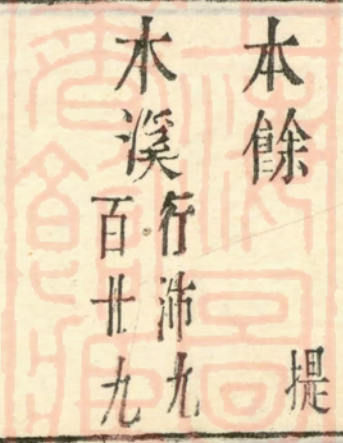 本餘 提
木溪
行沛九
百廿九